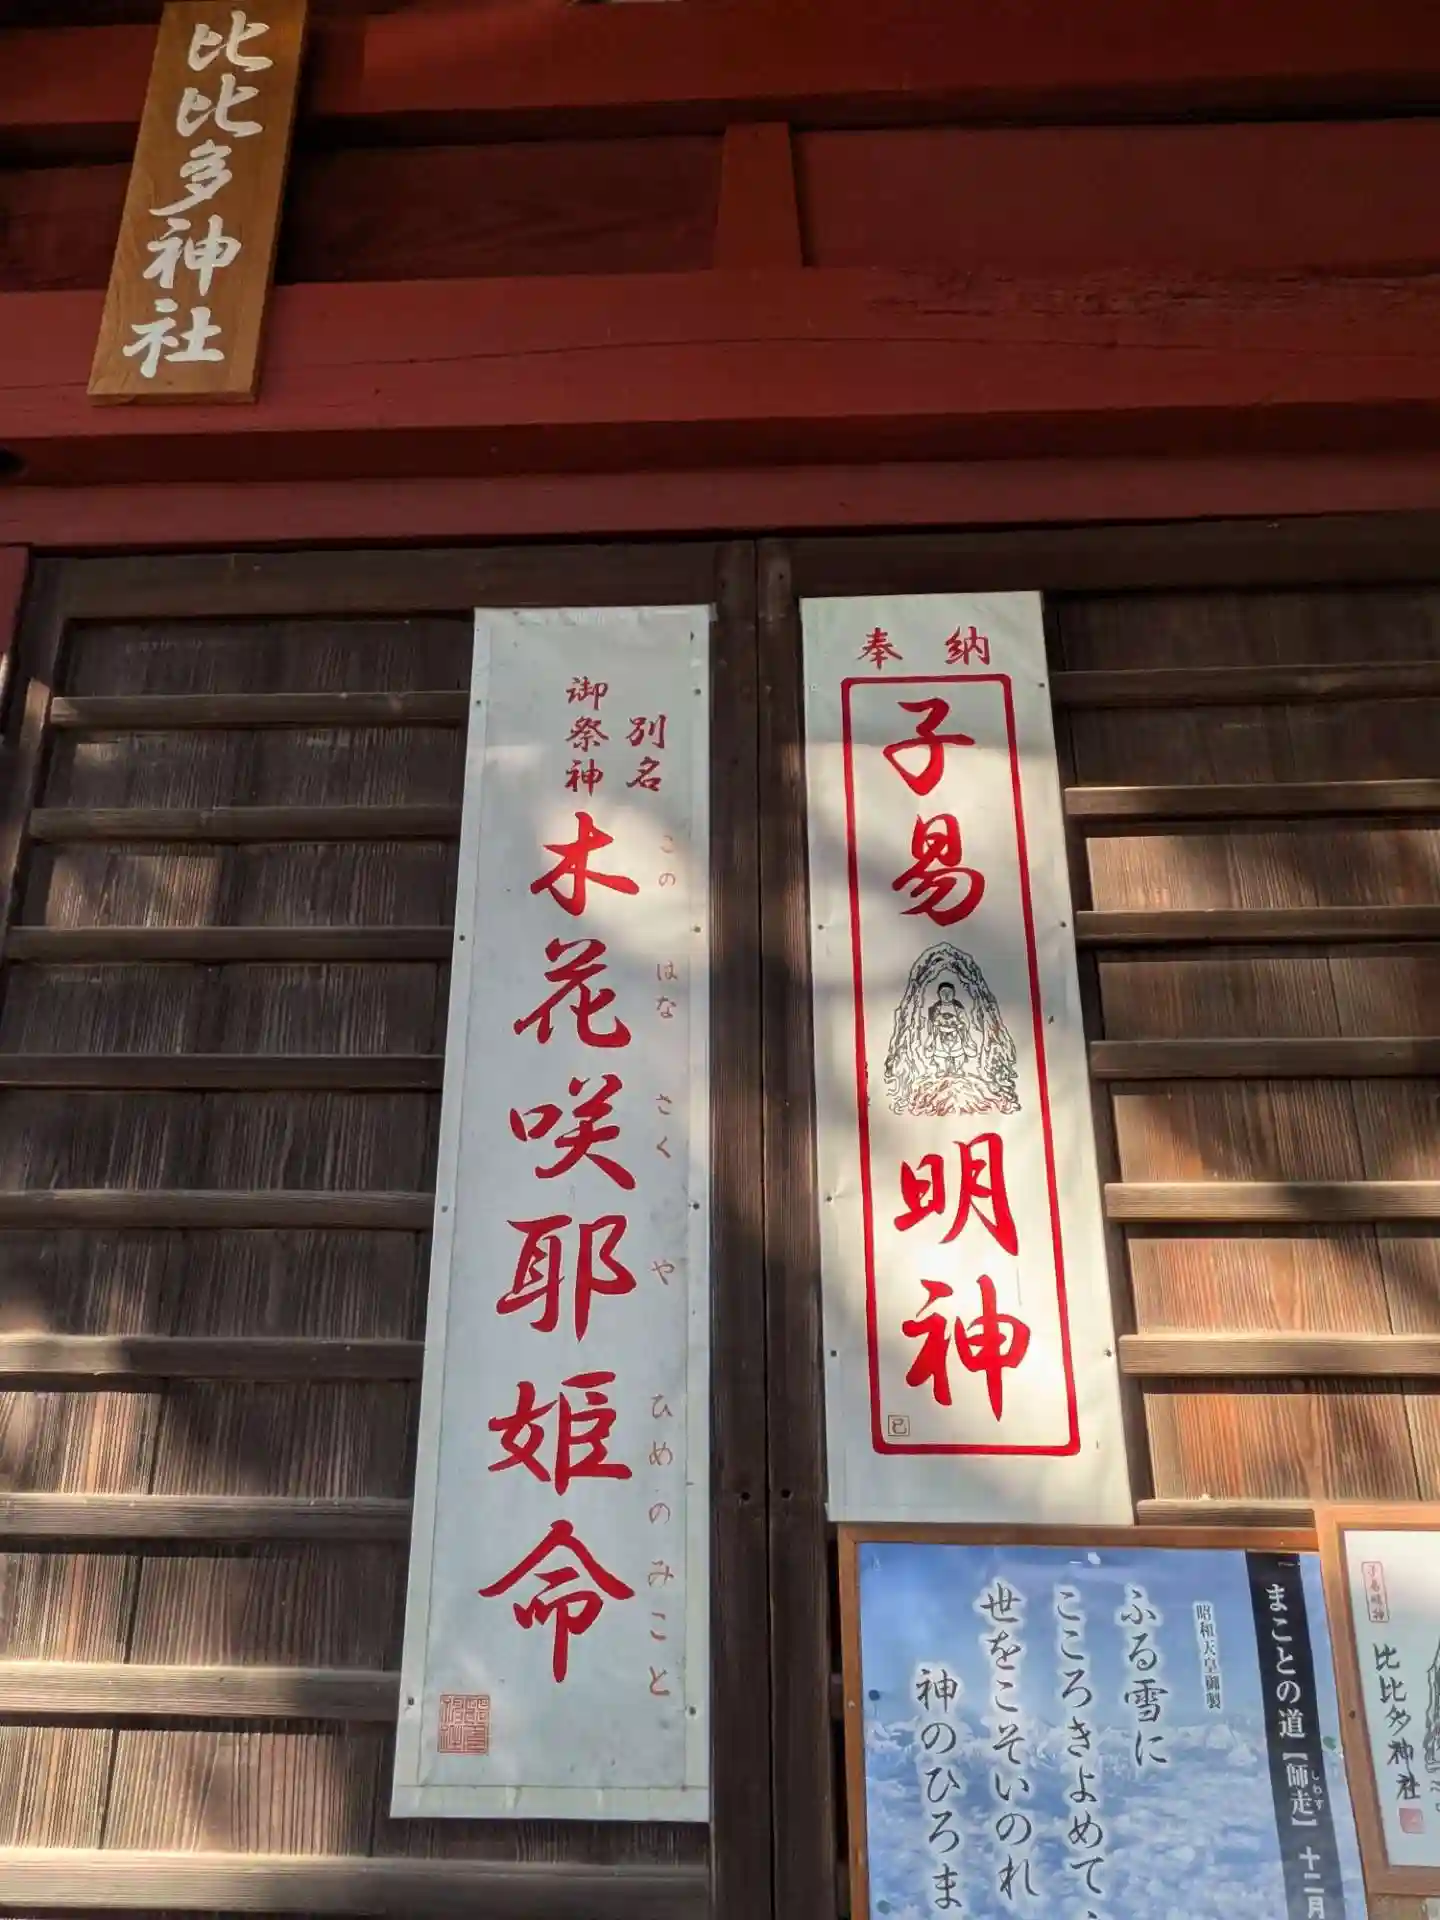 比比多神社
奉納
子易明神
別名
御祭神
木花咲耶姫命
このはなさくやひめのみこと
まことの道【師走】十二月
しわす
昭和天皇御製
ふる雪に
こころきよめて、
世をこそいのれ
神のひろま
子易明神
比比多神社